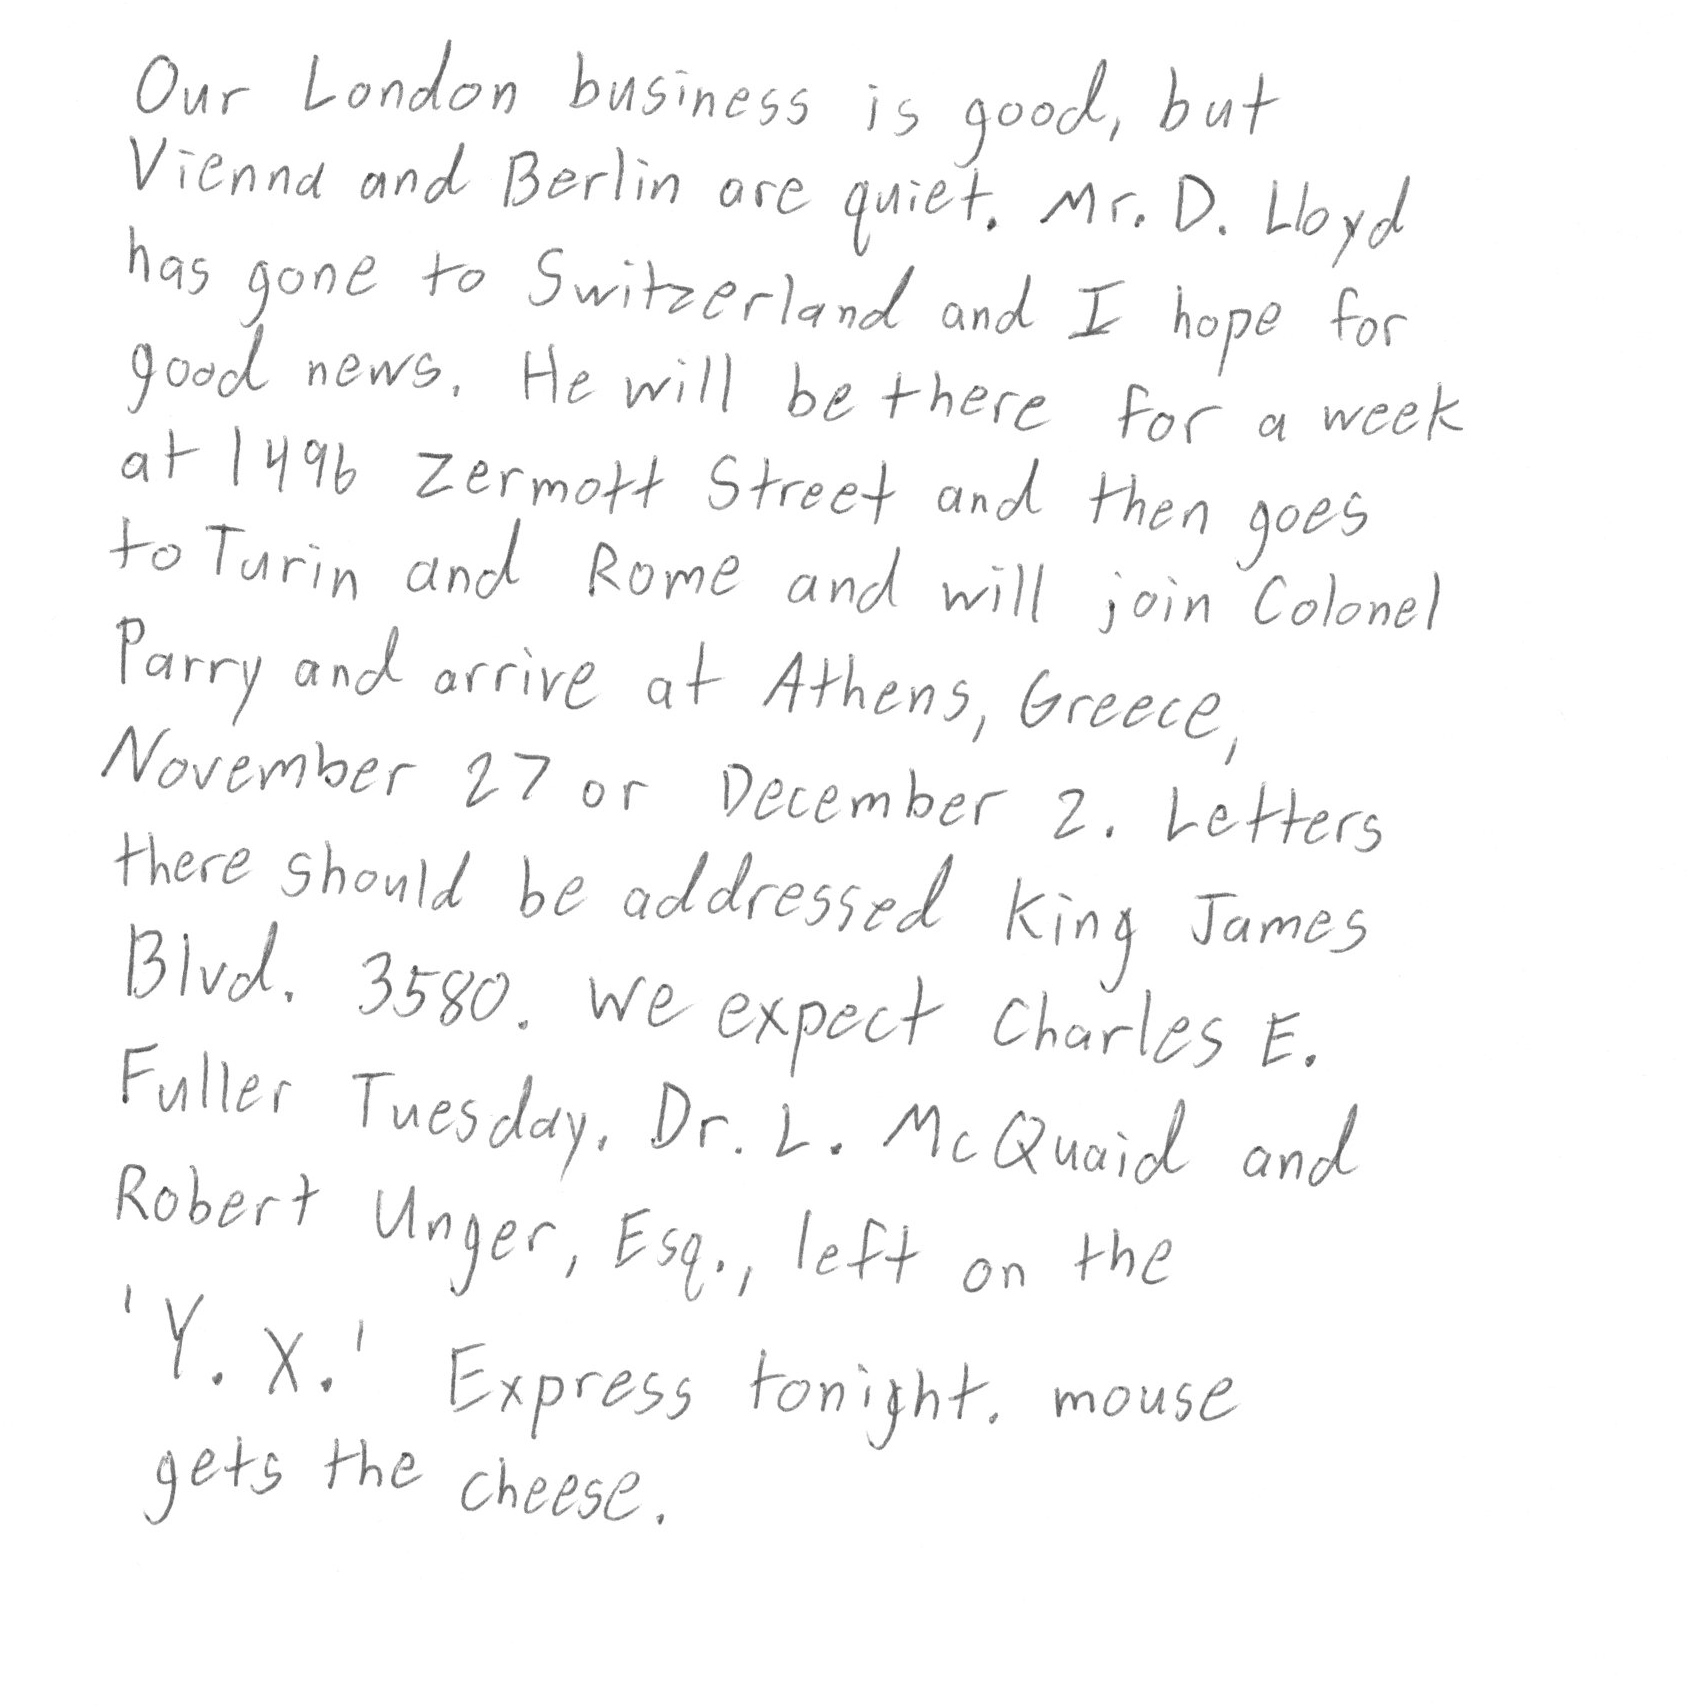 Our London business is good, but
Vienna and Berlin are quiet. Mr. D. Lloyd
has gone to Switzerland and I hope for
good news. He will be there for a week
at 1496 Zermott Street and then goes
to Turin and Rome and will join Colonel
Parry and arrive at Athens, Greece,
November 27 or December 2. Letters
there should be addressed King James
Blvd. 3580. We expect Charles E.
Fuller Tuesday. Dr. L. McQuaid and
Robert Unger, Esq., left on the
'Y. X.' Express tonight. mouse
gets the cheese.